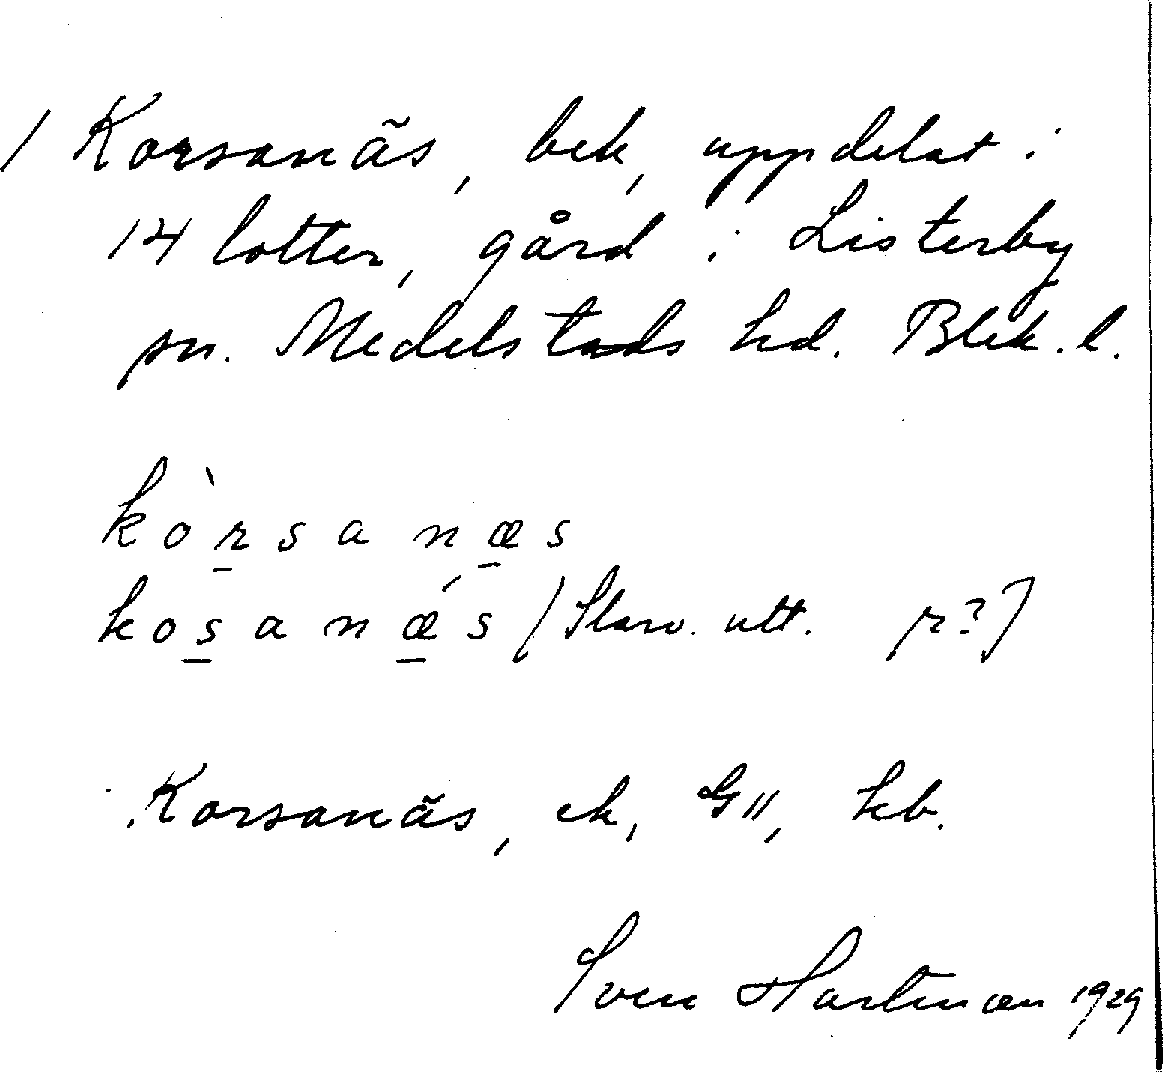 / Korsanäs, bek, uppdelat i
14 lotter, gård i Listerby
sn. Medelstads hd. Blek. l.
kòr̲sanæ̲s
kos̲anǽ̲s (Skrv. utt. r?)
Korsanäs, ek, G11, kb.
Sven Hartman 1929